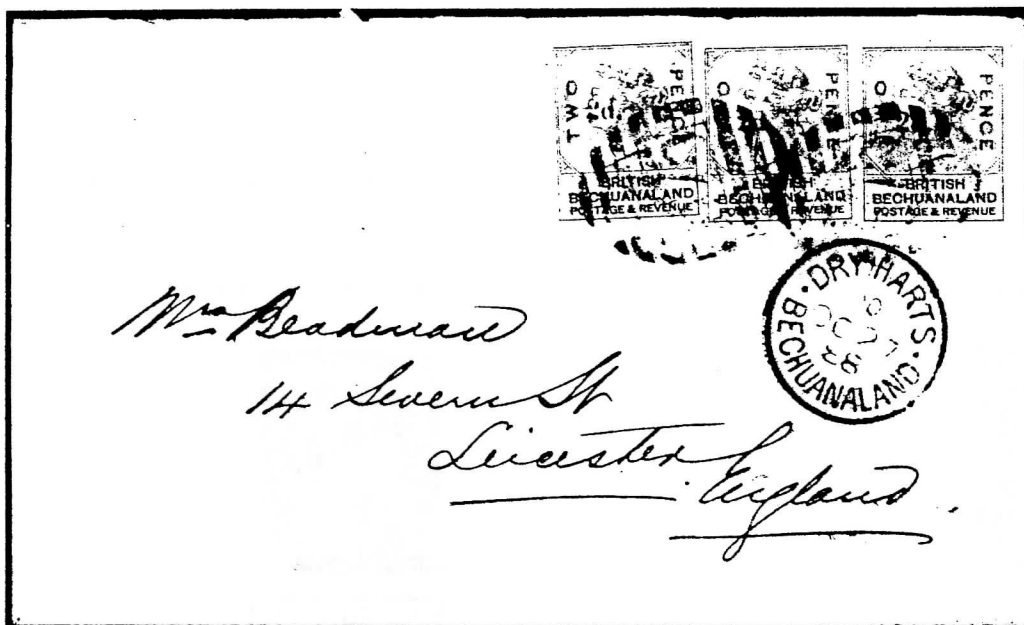 TWO PENCE
O PENCE
O PENCE
BRITISH
BECHUANALAND
POSTAGE & REVENUE
BRITISH
BECHUANALAND
POSTAGE & REVENUE
BRITISH
BECHUANALAND
POSTAGE & REVENUE
DRY HARTS
BECHUANALAND
Mrs Beadman
14 Severn St
Leicester
England.